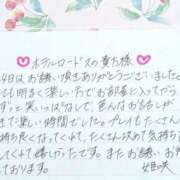 ホテルロードスの貴方様
4日はお誘い頂きありがとうございました。
ても明るく楽しい方でお部屋に入って
ずっと笑いっぱなしで、色んなお話しが
きて楽しい時間でした。プレイもたくさん
持ち良くなってくれて、たくさん攻めて気持ち
してくれて嬉しかったです。またお誘い、お待
ております。 姫咲